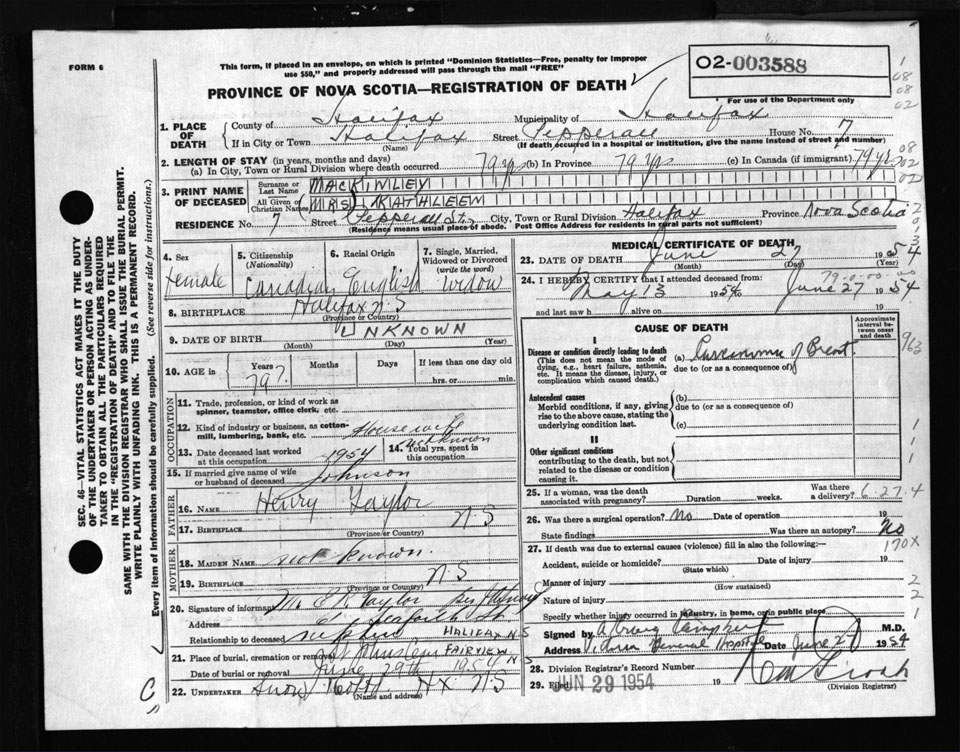 FORM 6
This form, if placed in an envelope, on which is printed "Dominion Statistics—Free, penalty for improper
use $50," and properly addressed will pass through the mail "FREE"
02-003588
For use of the Department only
PROVINCE OF NOVA SCOTIA—REGISTRATION OF DEATH
1. PLACE OF DEATH
County of Halifax Municipality of Halifax
If in City or Town Halifax Street Pepperell House No. 7
(Name) (If death occurred in a hospital or institution, give the name instead of street and number)
2. LENGTH OF STAY (in years, months and days)
(a) In City, Town or Rural Division where death occurred 79 yrs (b) In Province 79 yrs (c) In Canada (if immigrant) 79 yrs
3. PRINT NAME OF DECEASED
Surname or Last Name MACKINLEY
All Given or Christian Names MRS KATHLEEN
RESIDENCE No. 7 Street Pepperell St. City, Town or Rural Division Halifax Province Nova Scotia
(Residence means usual place of abode. Post Office Address for residents in rural parts not sufficient)
4. Sex
Female
5. Citizenship (Nationality)
Canadian
6. Racial Origin
English
7. Single, Married, Widowed or Divorced (write the word)
Widow
8. BIRTHPLACE Halifax N.S
(Province or Country)
9. DATE OF BIRTH UNKNOWN
(Month) (Day) (Year)
10. AGE in Years Months Days If less than one day old
79? hrs. or min.
OCCUPATION
11. Trade, profession, or kind of work as spinner, teamster, office clerk, etc.
12. Kind of industry or business, as cotton-mill, lumbering, bank, etc. Housewife
13. Date deceased last worked at this occupation 1954
14. Total yrs. spent in this occupation unknown
15. If married give name of wife or husband of deceased Johnson
FATHER
16. NAME Henry Taylor
17. BIRTHPLACE N S
(Province or Country)
MOTHER
18. MAIDEN NAME not known.
19. BIRTHPLACE N S
(Province or Country)
20. Signature of informant Mr. E K Taylor
Address Seaforth St
Relationship to deceased nephew HALIFAX N S
21. Place of burial, cremation or removal FAIRVIEW N S
Date of burial or removal June 29th 1954
22. UNDERTAKER Snow Hx N.S
(Name and address)
MEDICAL CERTIFICATE OF DEATH
23. DATE OF DEATH June 27 1954
(Month) (Day) (Year)
24. I HEREBY CERTIFY that I attended deceased from: 79-0-00-00
May 13 1954 to June 27 1954
and last saw h alive on 19
CAUSE OF DEATH
Approximate interval between onset and death
I
Disease or condition directly leading to death (a) Carcinoma of Breast
This does not mean the mode of dying, e.g., heart failure, asthenia, etc. It means the disease, injury, or complication which caused death.
due to (or as a consequence of)
Antecedent causes
Morbid conditions, if any, giving rise to the above cause, stating the underlying condition last.
(b)
due to (or as a consequence of)
(c)
II
Other significant conditions
contributing to the death, but not related to the disease or condition causing it.
25. If a woman, was the death associated with pregnancy? Duration weeks. Was there a delivery? 6-27-4
26. Was there a surgical operation? No Date of operation 19
State findings Was there an autopsy? No
170X
27. If death was due to external causes (violence) fill in also the following:—
Accident, suicide or homicide? Date of injury 19
(State which)
Manner of injury
(How sustained)
Nature of injury
Specify whether injury occurred in industry, in home, or in public place
Signed by M.D.
Address Victoria General Hospital Date June 27 1954
28. Division Registrar's Record Number
29. Filed JUN 29 1954 19
(Division Registrar)
SEC. 46—VITAL STATISTICS ACT MAKES IT THE DUTY
OF THE UNDERTAKER OR PERSON ACTING AS UNDER-
TAKER TO OBTAIN ALL THE PARTICULARS REQUIRED
IN THE "REGISTRATION OF DEATH" AND TO FILE THE
SAME WITH THE DIVISION REGISTRAR WHO SHALL ISSUE THE BURIAL PERMIT.
WRITE PLAINLY WITH UNFADING INK. THIS IS A PERMANENT RECORD.
Every item of information should be carefully supplied. (See reverse side for instructions.)